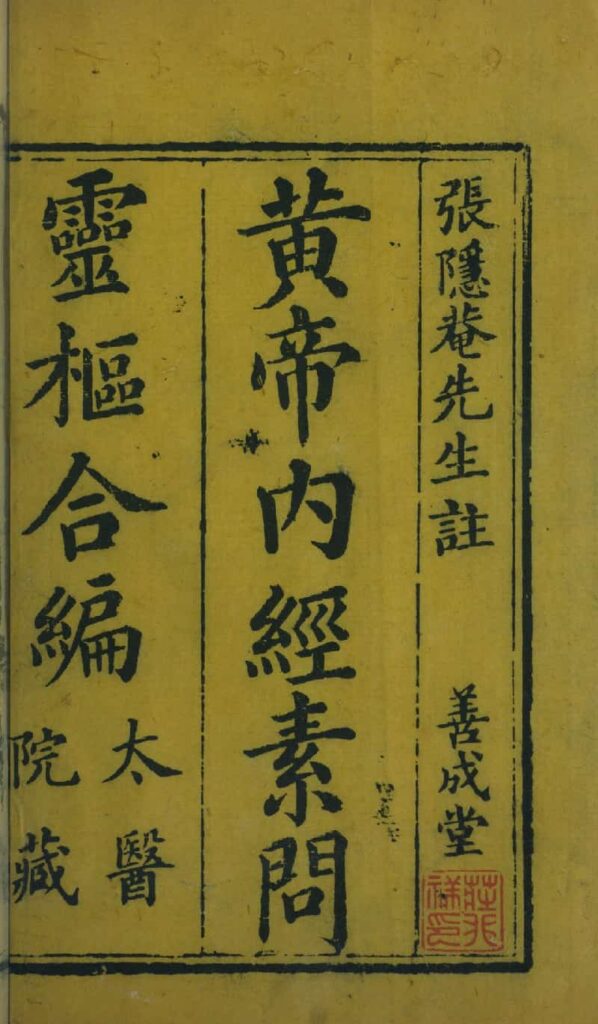 張隱菴先生註
善成堂
黄帝内經素問
靈樞合編
太醫
院藏